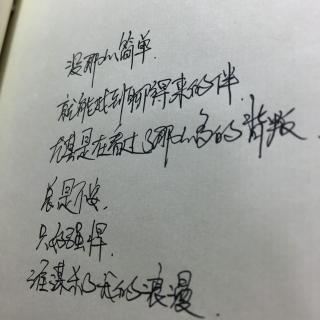 没那么简单.
就能找到聊得来的伴.
尤其是在看过了那么多的背叛.
总是不安.
只好强悍.
谁谋杀了我的浪漫.